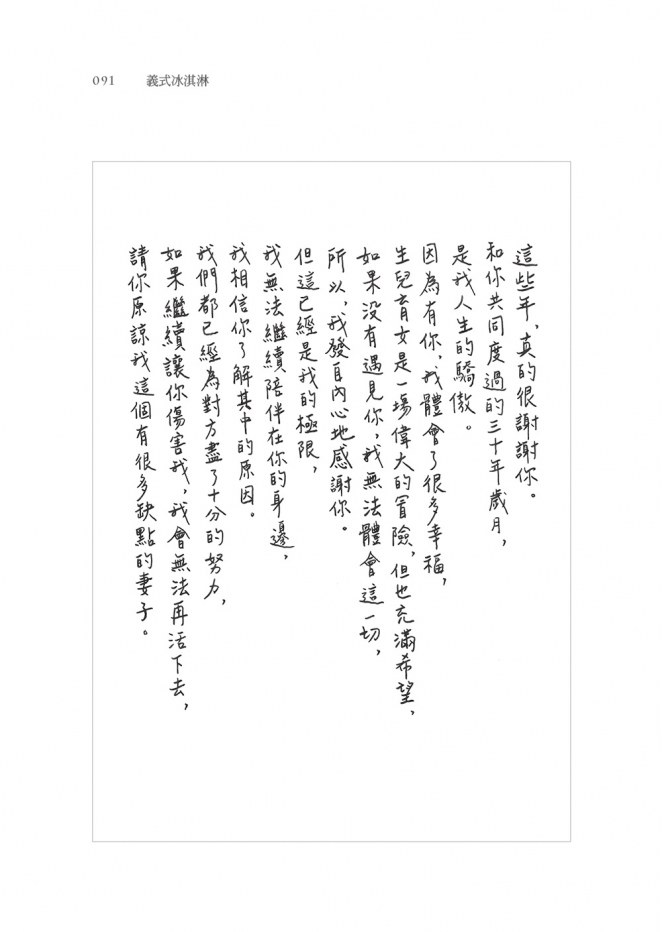 091 義式冰淇淋
這些年，真的很謝謝你。
和你共同度過的三十年歲月，
是我人生的驕傲。
因為有你，我體會了很多幸福，
生兒育女是一場偉大的冒險，但也充滿希望，
如果沒有遇見你，我無法體會這一切，
所以，我發自內心地感謝你。
但這已經是我的極限，
我無法繼續陪伴在你的身邊，
我相信你了解其中的原因。
我們都已經為對方盡了十分的努力，
如果繼續讓你傷害我，我會無法再活下去，
請你原諒我這個有很多缺點的妻子。